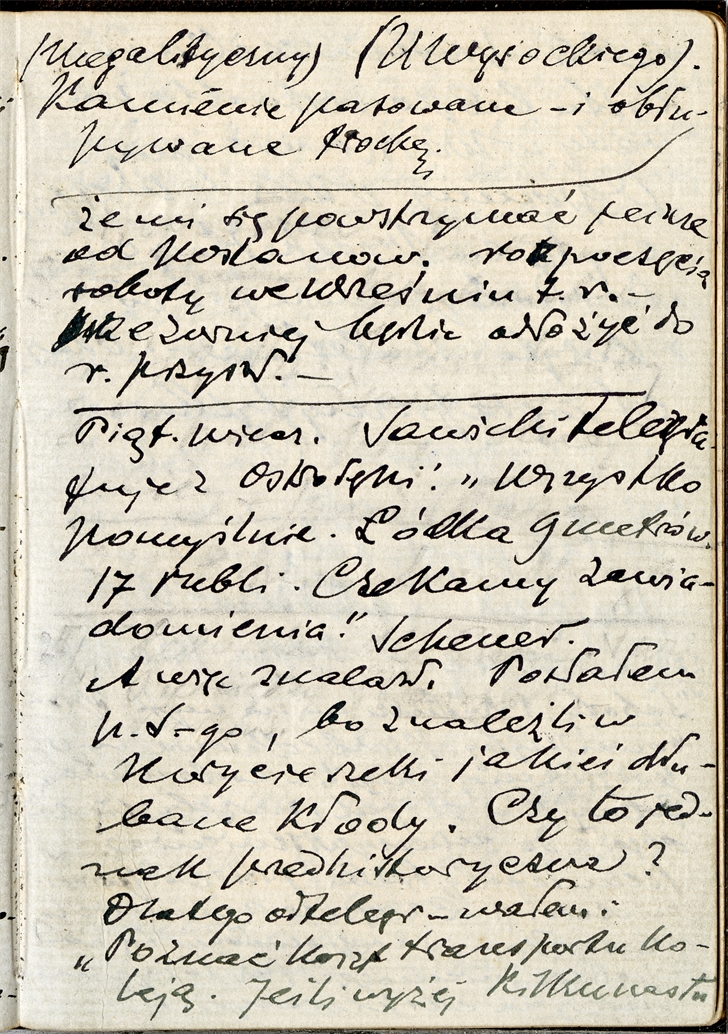 megalityczny) (U Wysockiego).
Kamienie pasowane – i obłu-
pywane trochę.
że mi się powstrzymać jeszcze
od postanow. rozpoczęcia
roboty we Wrześniu t. r. –
będzie odłożyć do
r. przyszł. –
Piąt. wiecz. Sawicki telegra-
fuje z Ostrołęki: „Wszystko
pomyślnie. Łódka 9 metrów.
17 rubli. Czekamy zawia-
domienia!" Schened.
A więc znalazł. Posłałem
p. S-go, bo znaleźli w
korycie rzeki jakieś dłu-
bane kłody. Czy to jed-
nak predhistoryczna?
Dlatego odtelegr-wałem:
„Poznać koszt transportu ko-
leją. Jeśli wyżej kilkunastu